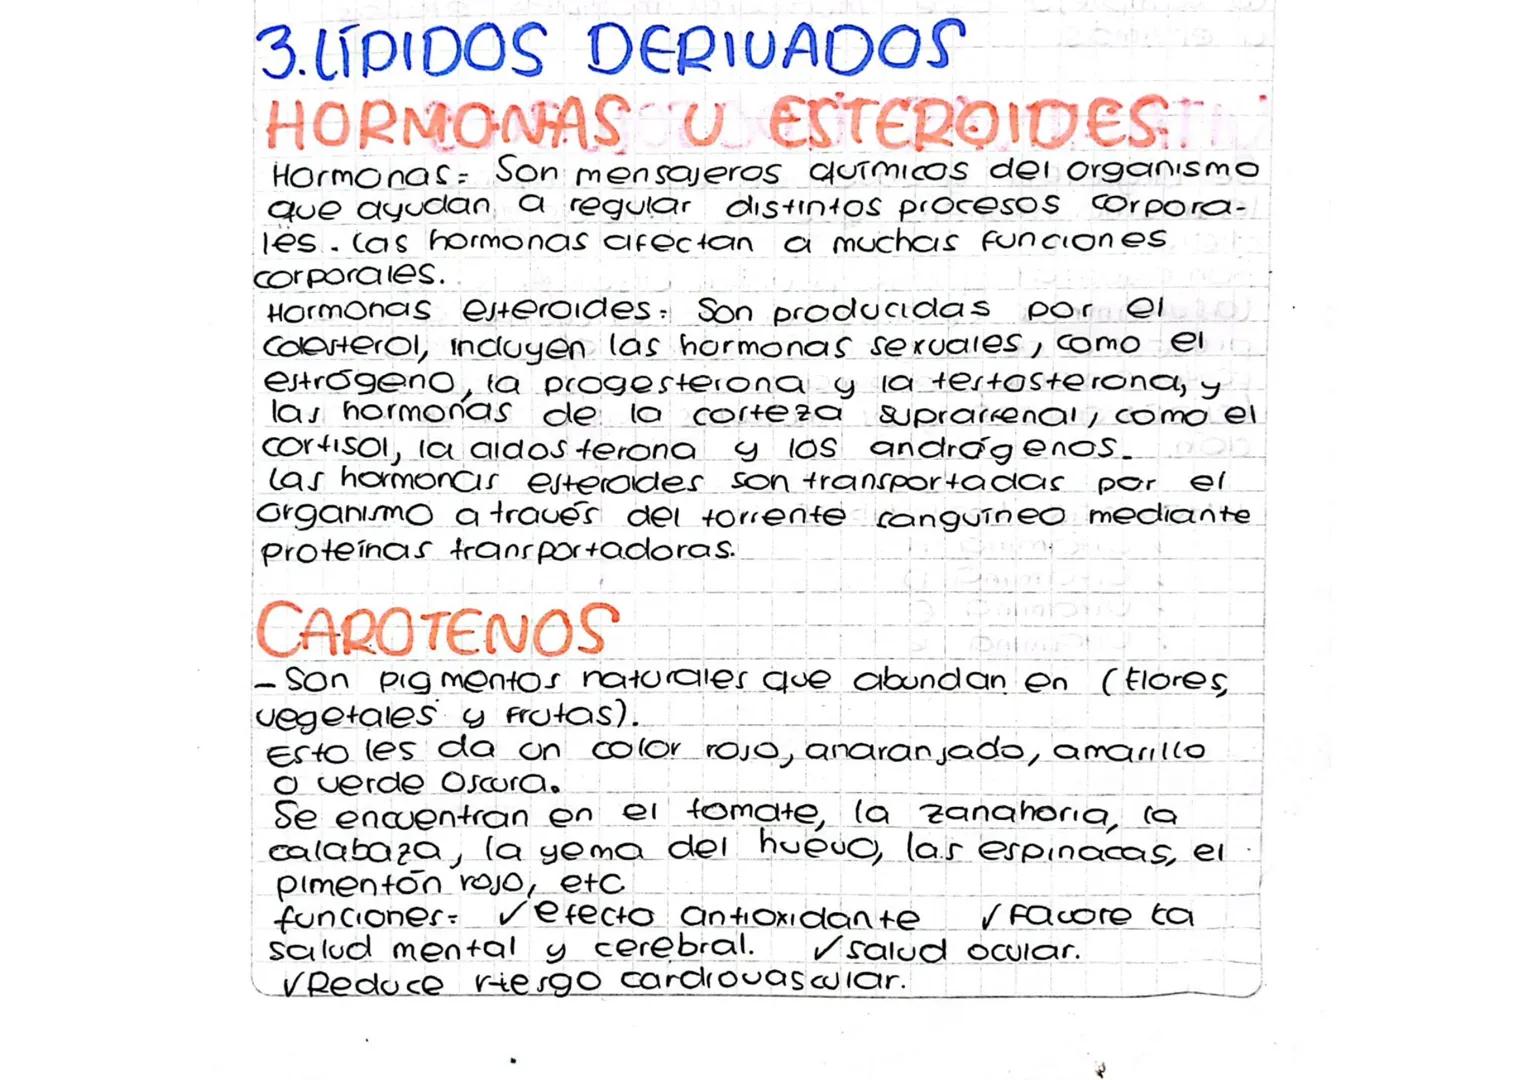 3. LÍPIDOS DERIVADOS
HORMONAS U ESTEROIDES
Hormonas: Son mensajeros químicos del organismo
que ayudan a regular distintos procesos corpora-
les. Las hormonas afectan a muchas funciones
corporales.
Hormonas esteroides: Son producidas por el
colesterol, incluyen las hormonas sexuales, como el
estrógeno, la progesterona y la testosterona, y
las hormonas de la corteza suprarrenal, como el
cortisol, la aldosterona y los andrógenos.
Las hormonas esteroides son transportadas por el
organismo a través del torrente sanguíneo mediante
proteínas transportadoras.
CAROTENOS
- Son pigmentos naturales que abundan en (Flores,
vegetales y frutas).
Esto les da un color rojo, anaranjado, amarillo
o verde oscura.
Se encuentran en el tomate, la zanahoria, la
calabaza, la yema del huevo, las espinacas, el
pimentón rojo, etc
funciones: ✓ efecto antioxidante ✓ Favore ta
salud mental y cerebral. ✓ salud ocular.
✓ Reduce riesgo cardiovascular.